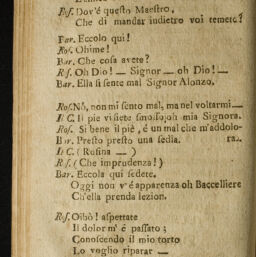 Ros. Dov'è questo Maestro,
Che di mandar indietro voi temete?
Bar. Eccolo quì!
Ros. Ohime!
Bar. Che cosa avete?
Ros. Oh Dio! — Signor — oh Dio! —
Bar. Ella si sente mal Signor Alonzo.
Ros. Nò, non mi sento mal, ma nel voltarmi —
Il C. Il piè vi siete smosso, oh mia Signora.
Ros. Si bene il piè, è un mal che m'addolo-
Bar. Presto presto una sedia. ra.
Il C. (Rosina — )
Ros. (Che imprudenza!)
Bar. Eccola quì sedete.
Oggi non v'è apparenza oh Baccelliere
Ch'ella prenda lezion.
Ros. Oibò! aspettate
Il dolor m'è passato;
Conoscendo il mio torto
Lo voglio riparar —